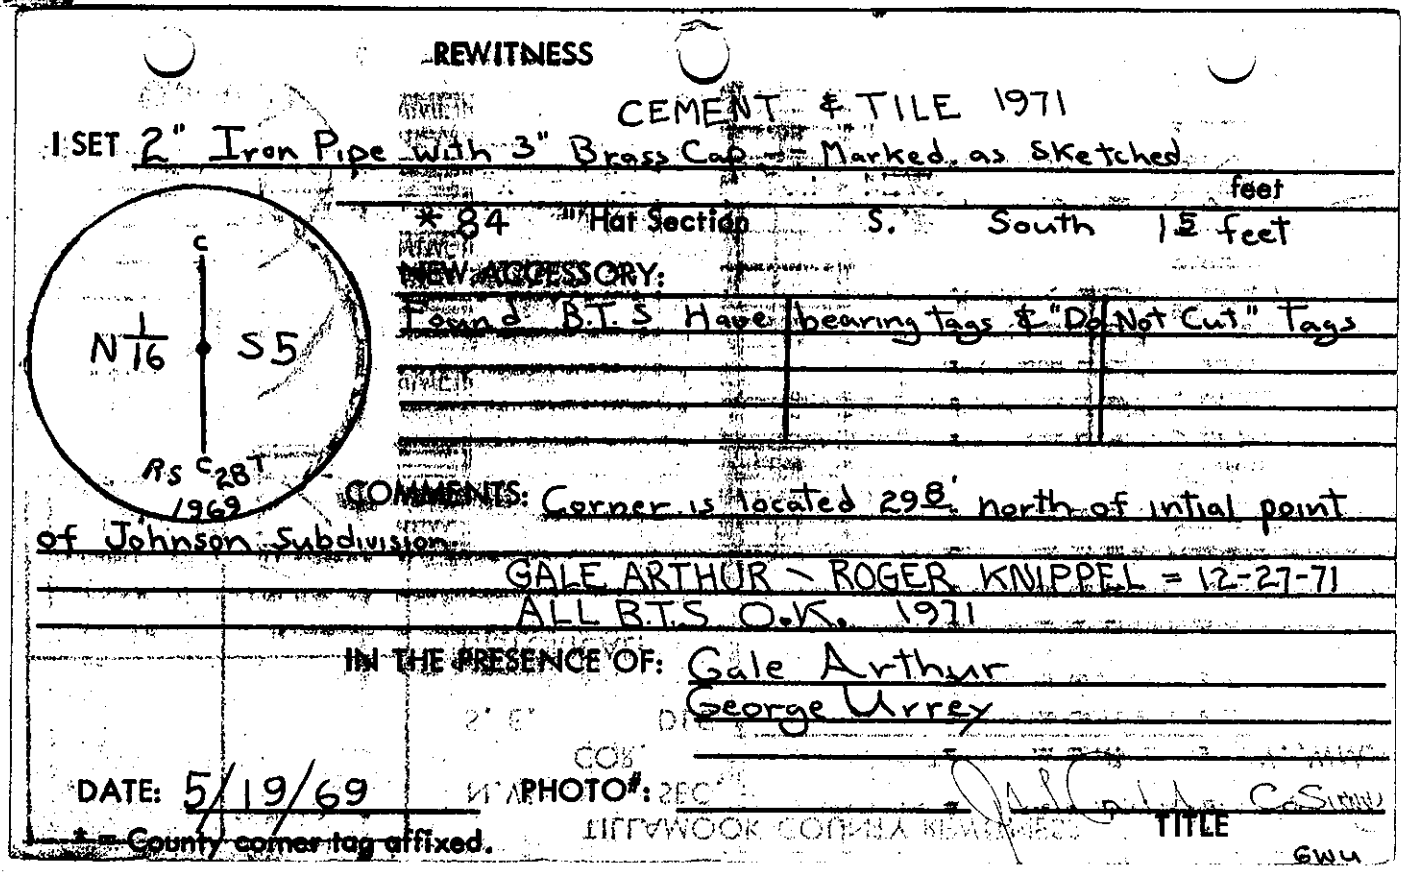 REWITNESS
CEMENT & TILE 1971
I SET 2" Iron Pipe with 3" Brass Cap -- Marked as Sketched
feet
* 84 "Hat Section S. South 15 feet
NEW ACCESSORY:
Found B.T.S Have bearing tags & "Do Not Cut" Tags
C
N 1/16 S5
RS C 28 T
1969
COMMENTS: Corner is located 298' north of intial point
of Johnson Subdivision.
GALE ARTHUR - ROGER KNIPPEL = 12-27-71
ALL B.T.S O.K. 1971
IN THE PRESENCE OF: Gale Arthur
George Urrey
S. E. DLC
COR.
N.W. SEC.
DATE: 5/19/69 PHOTO#:
TILLAMOOK COUNTY REWITNESS
TITLE
* = County corner tag affixed.
GWU